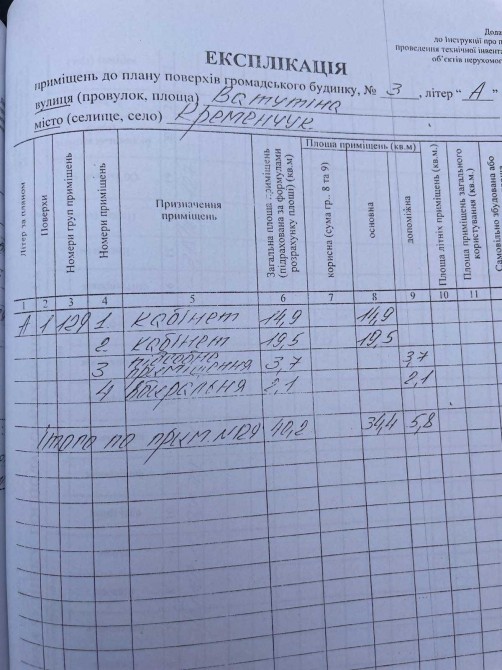 Дода
до Інструкції про п
проведення технічної інвента
об'єктів нерухомос
ЕКСПЛІКАЦІЯ
приміщень до плану поверхів громадського будинку, № 3 , літер “ А ”
вулиця (провулок, площа) Ватутіна
місто (селище, село) Кременчук
Літер за планом
Поверхи
Номери груп приміщень
Номери приміщень
Призначення приміщень
Загальна площа приміщень (підрахована за формулами розрахунку площі) (кв.м)
Площа приміщень (кв.м)
корисна (сума гр.. 8 та 9)
основна
допоміжна
Площа літніх приміщень (кв.м.)
Площа приміщень загального користування (кв.м.)
Самовільно збудована або
1 2 3 4 5 6 7 8 9 10 11
А 1 129 1. кабінет 14,9 14,9
2. кабінет 19,5 19,5
3 підсобне приміщення 3,7 3,7
4 вбиральня 2,1 2,1
Итого по прим №129 40,2 34,4 5,8